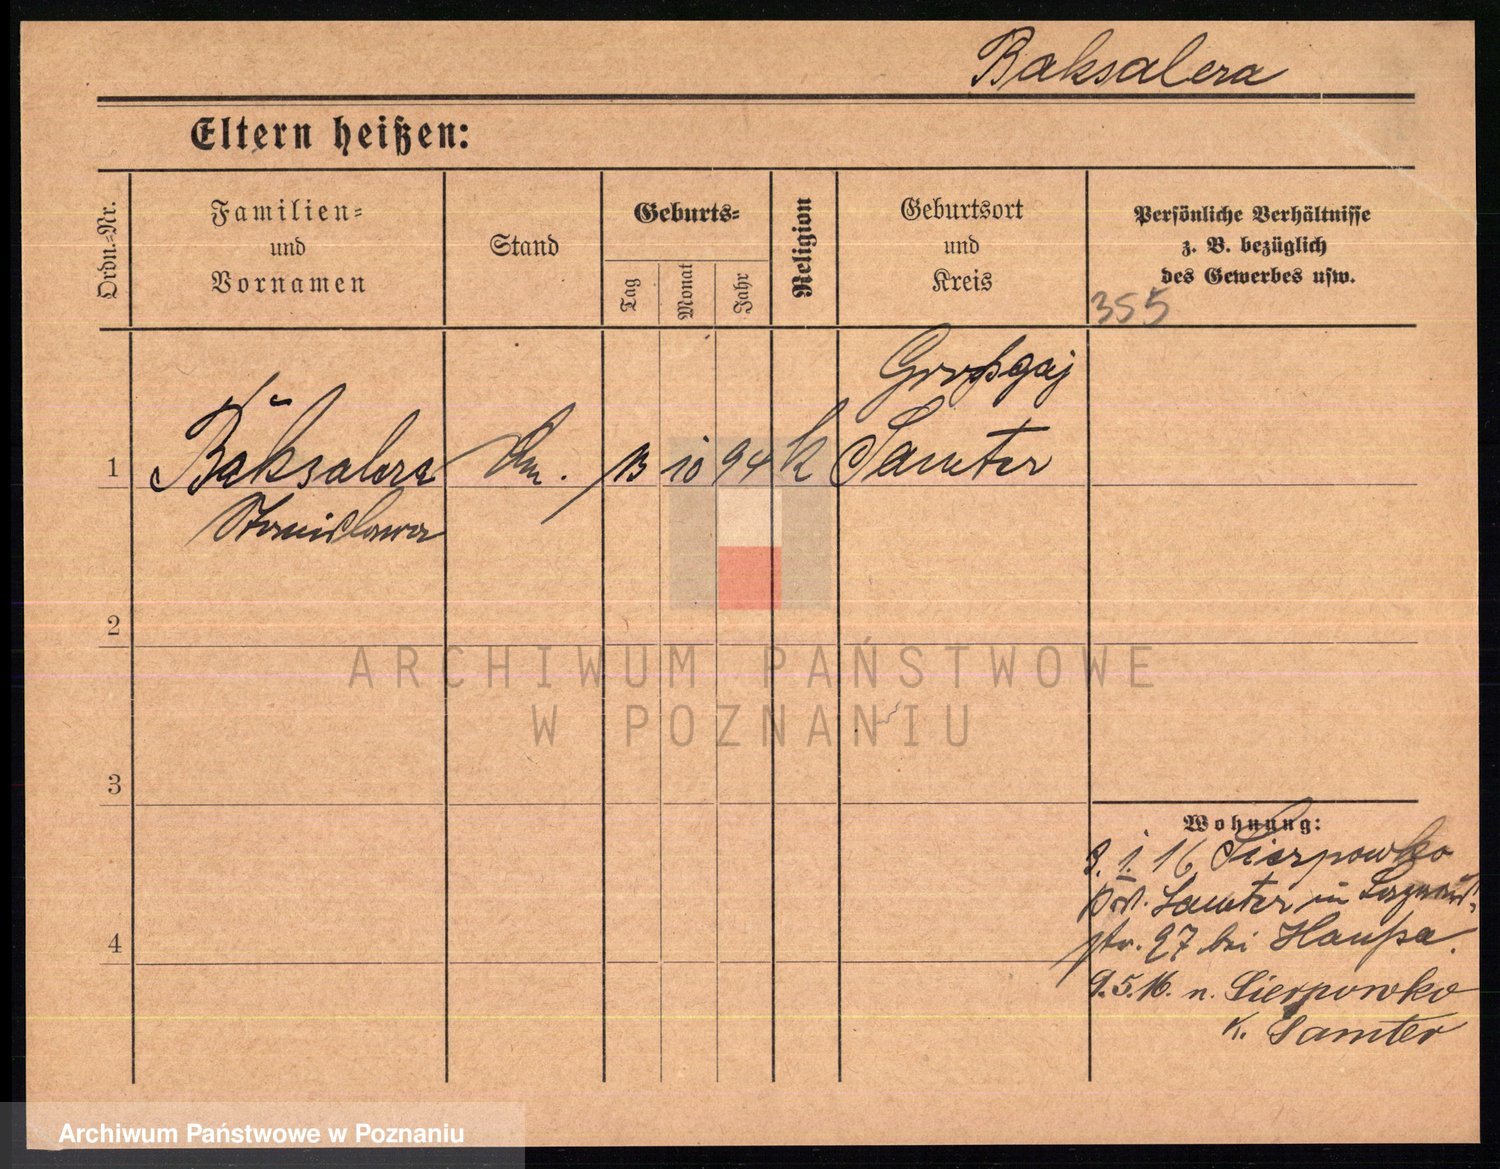 Baksalera
Eltern heißen:
Ordn.-Nr.
Familien-
und
Vornamen
Stand
Geburts-
Tag
Monat
Jahr
Religion
Geburtsort
und
Kreis
Persönliche Verhältnisse
z. B. bezüglich
des Gewerbes usw.
355
1
Baksalera
Stanislawa
13
10
94
k
Großgaj
Samter
2
ARCHIWUM PAŃSTWOWE
W POZNANIU
3
Wohnung:
3. 1. 16 Sierpowko
Samter in
str. 27 bei
4
9.5.16. n. Sierpowko
K. Samter
Archiwum Państwowe w Poznaniu